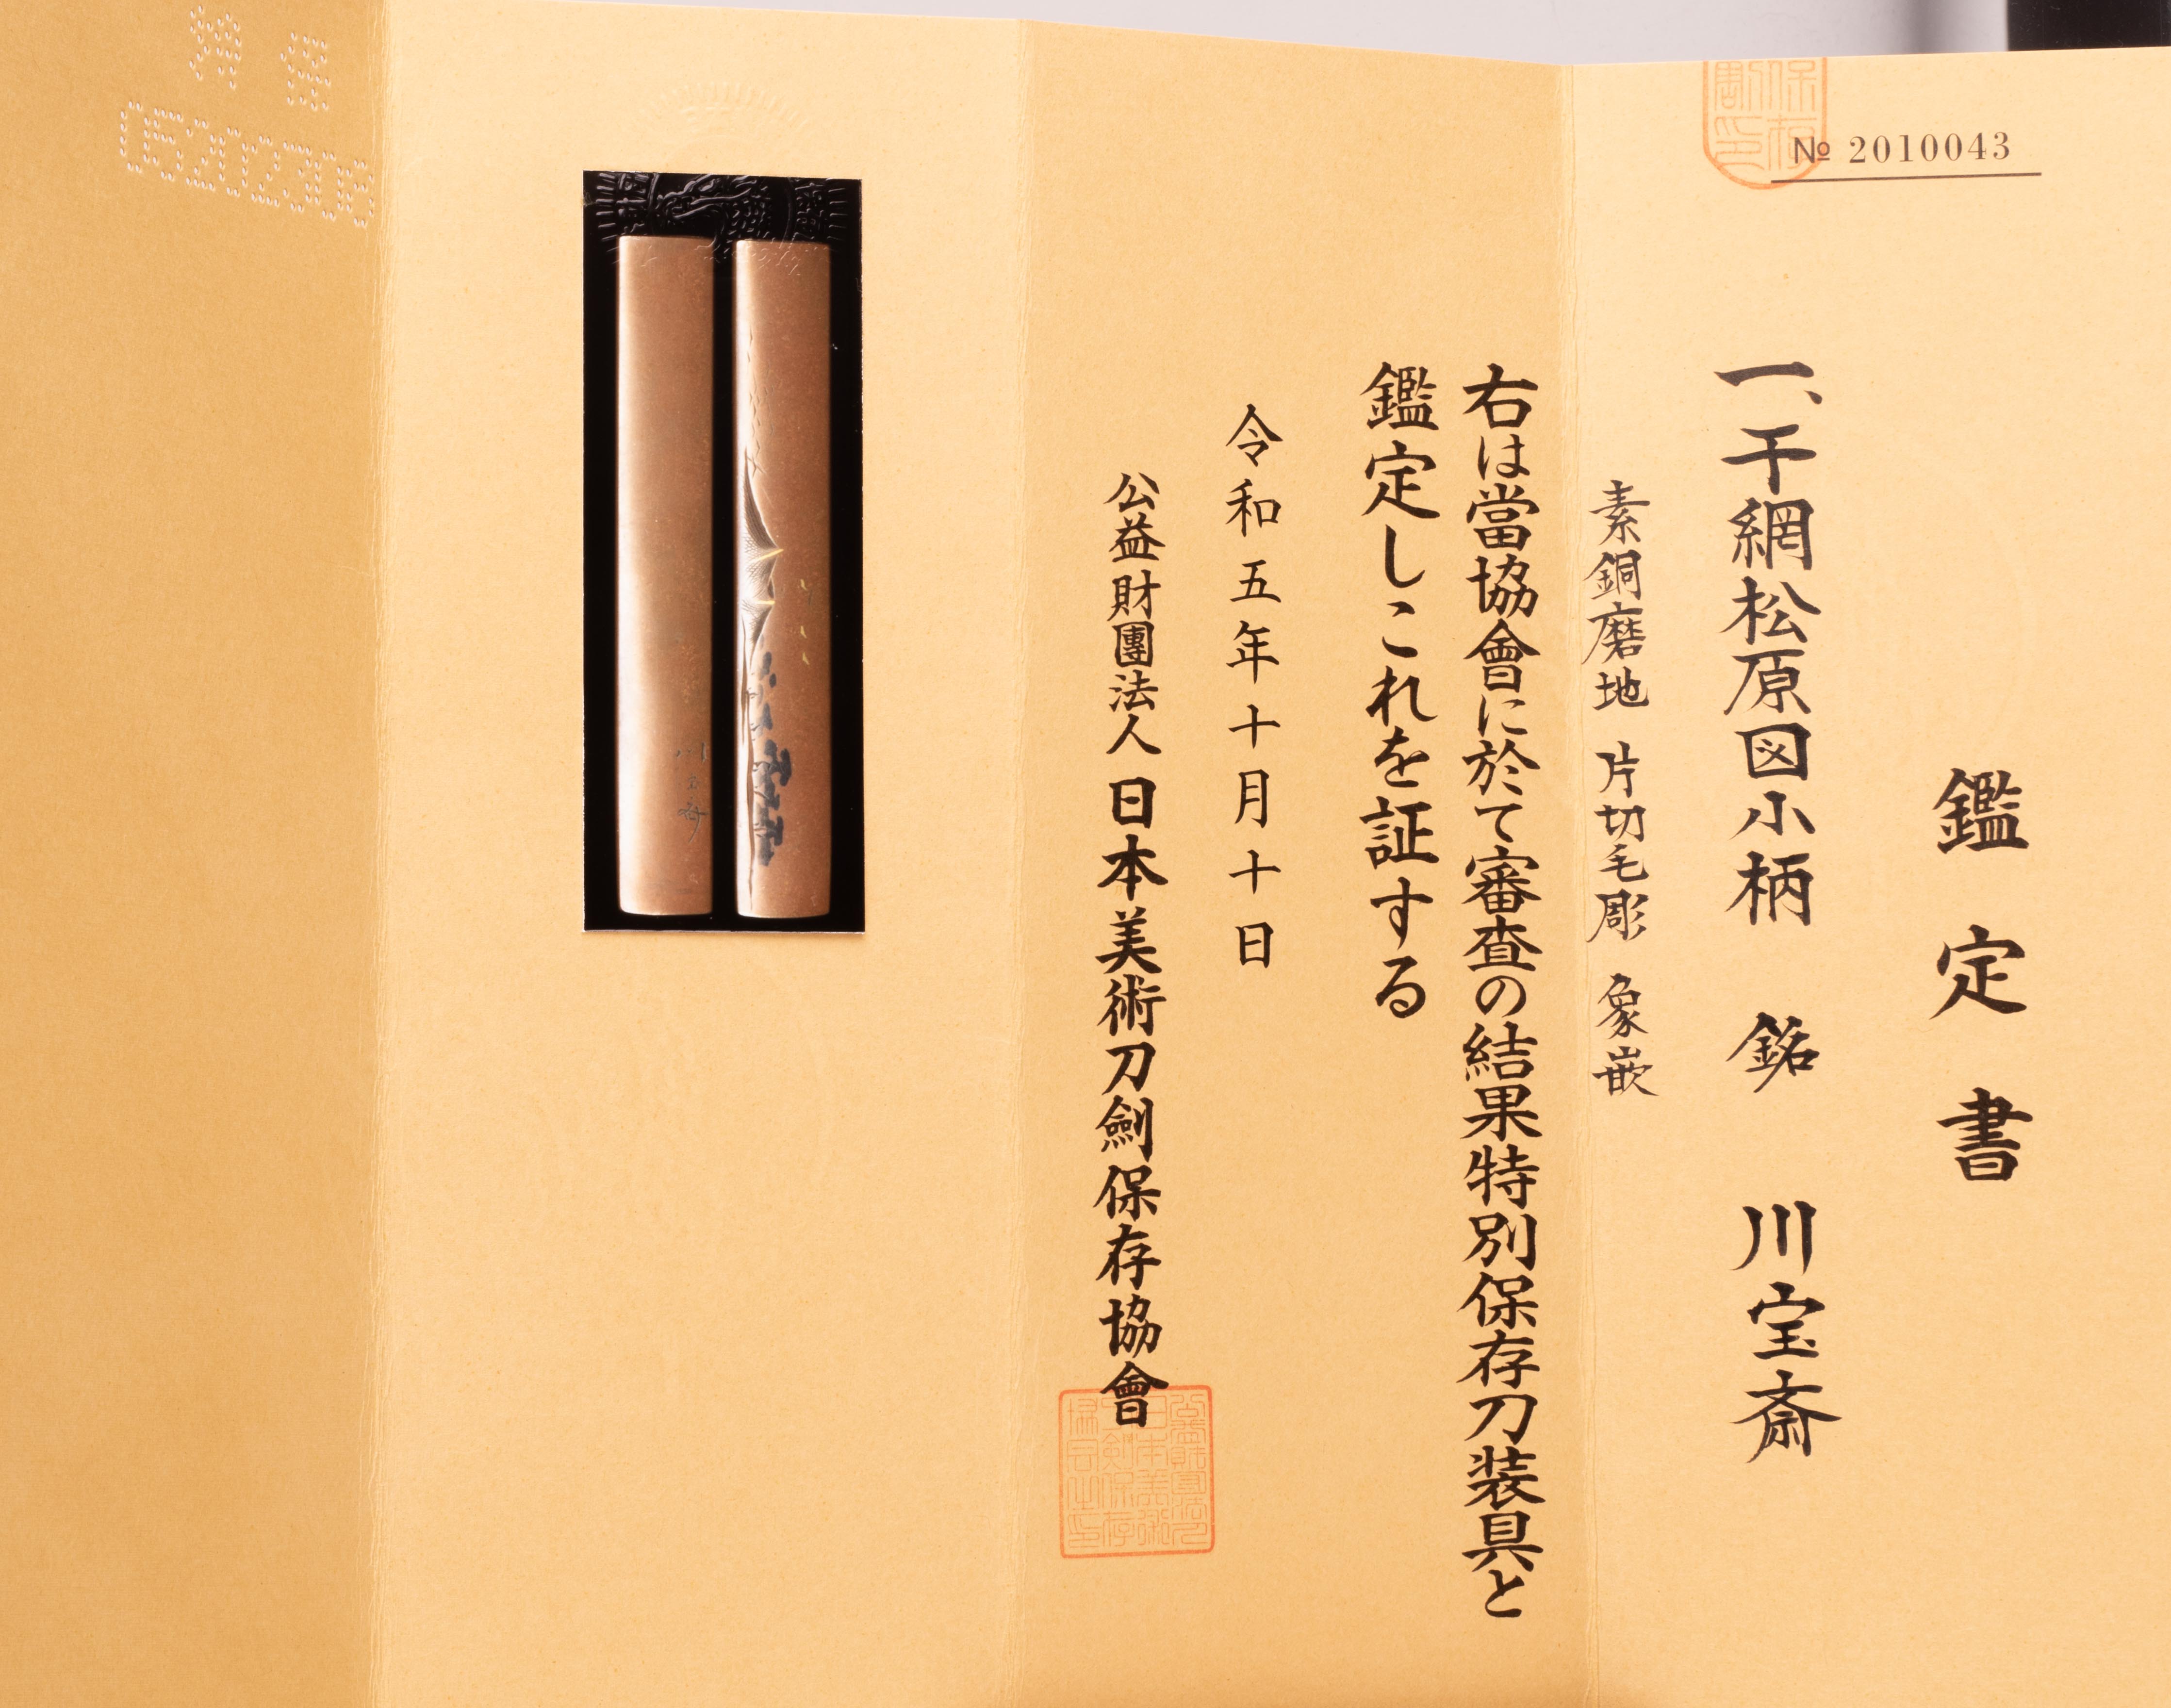 № 2010043
鑑定書
一、干網松原図小柄 銘 川宝斎
素銅磨地 片切毛彫 象嵌
右は當協會に於て審査の結果特別保存刀装具と
鑑定しこれを証する
令和五年十月十日
公益財團法人 日本美術刀劍保存協會
川宝斎
特保